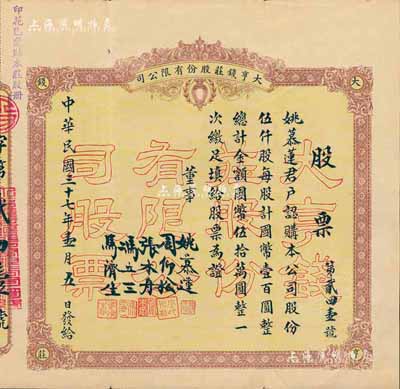 印花已繳貼本莊股冊
大亨錢莊股份有限公司
大
錢
莊
股票
第貳四壹號
姚慕蓮君戶認購本公司股份
伍仟股每股計國幣壹百圓整
總計金額國幣伍拾萬圓整一
次繳足填給股票為證
董事
姚慕蓮
周仰松
張木舟
馮立三
馬濟生
中華民國三十七年壹月五日發給
大亨錢莊股份有限公司股票